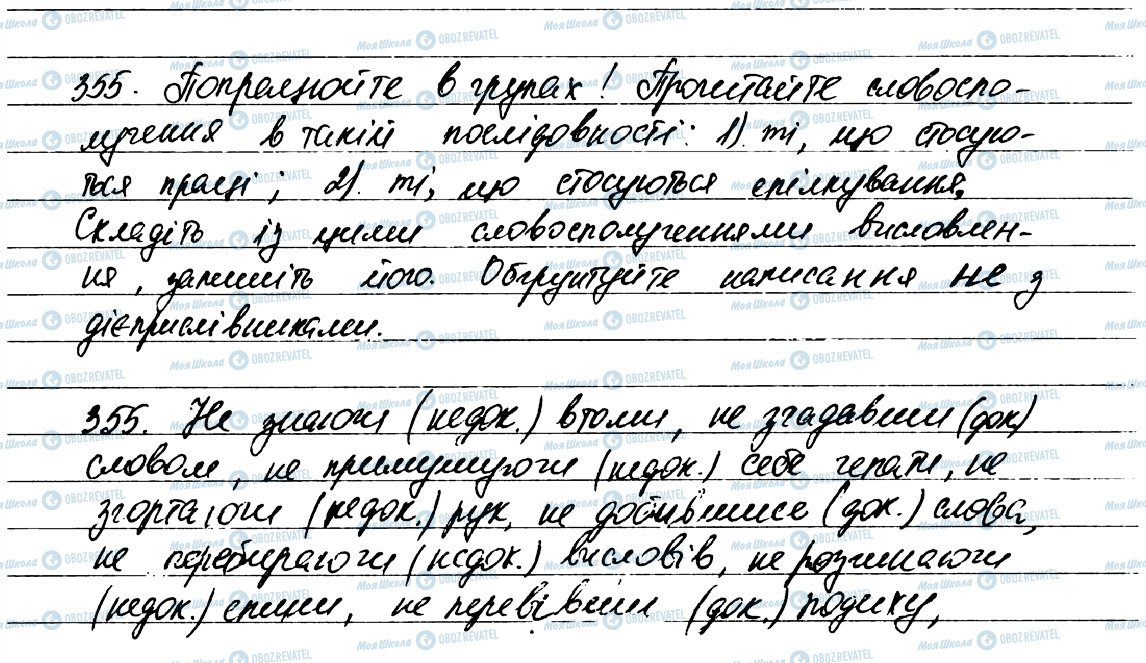 355. Попрацюйте в групах! Прочитайте словоспо-
лучення в такій послідовності: 1). ті, що стосую-
ться праці; 2). ті, що стосуються спілкування.
Складіть із цими словосполученнями висловлен-
ня, запишіть його. Обґрунтуйте написання не з
дієприслівниками.
355. Не знаючи (недок.) втоми, не згадавши (док)
словом, не примушуючи (недок.) себе чекати, не
згортаючи (недок.) рук, не добившися (док.) слова,
не перебираючи (недок.) висловів, не розгинаючи
(недок.) спини, не перевівши (док.) подиху,